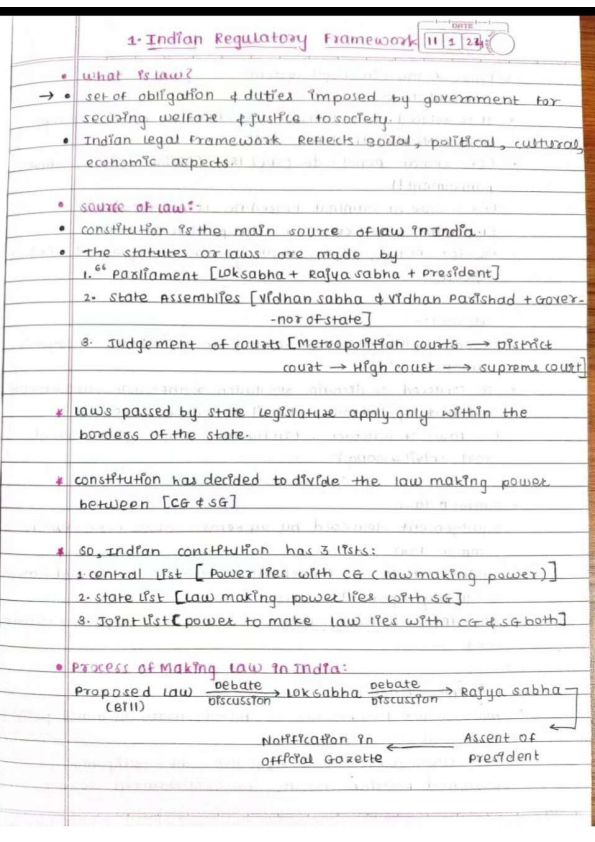 DATE
1. Indian Regulatory Framework 11 1 24
• What is law?
→ • set of obligation & duties imposed by government for
securing welfare & justice to society.
• Indian legal framework Reflects social, political, cultural,
economic aspects.
• source of law:-
• constitution is the main source of law in India.
• The statutes or laws are made by
1. “ Parliament [Loksabha + Rajya sabha + president]
2. State Assemblies [vidhan sabha & vidhan parishad + Gover-
-nor of state]
3. Judgement of courts [Metropolitian courts → District
court → High court → supreme court]
* Laws passed by state legislature apply only within the
borders of the state.
* constitution has decided to divide the law making power
between [CG & SG]
* so, Indian constitution has 3 lists:
1. central list [ Power lies with CG (law making power)]
2. state list [Law making power lies with SG]
3. Joint list [power to make law lies with CG & SG both]
• Process of Making Law in India:
Proposed Law Debate → Loksabha Debate → Rajya sabha
(Bill) Discussion Discussion
Notification in ← Assent of
official Gazette President